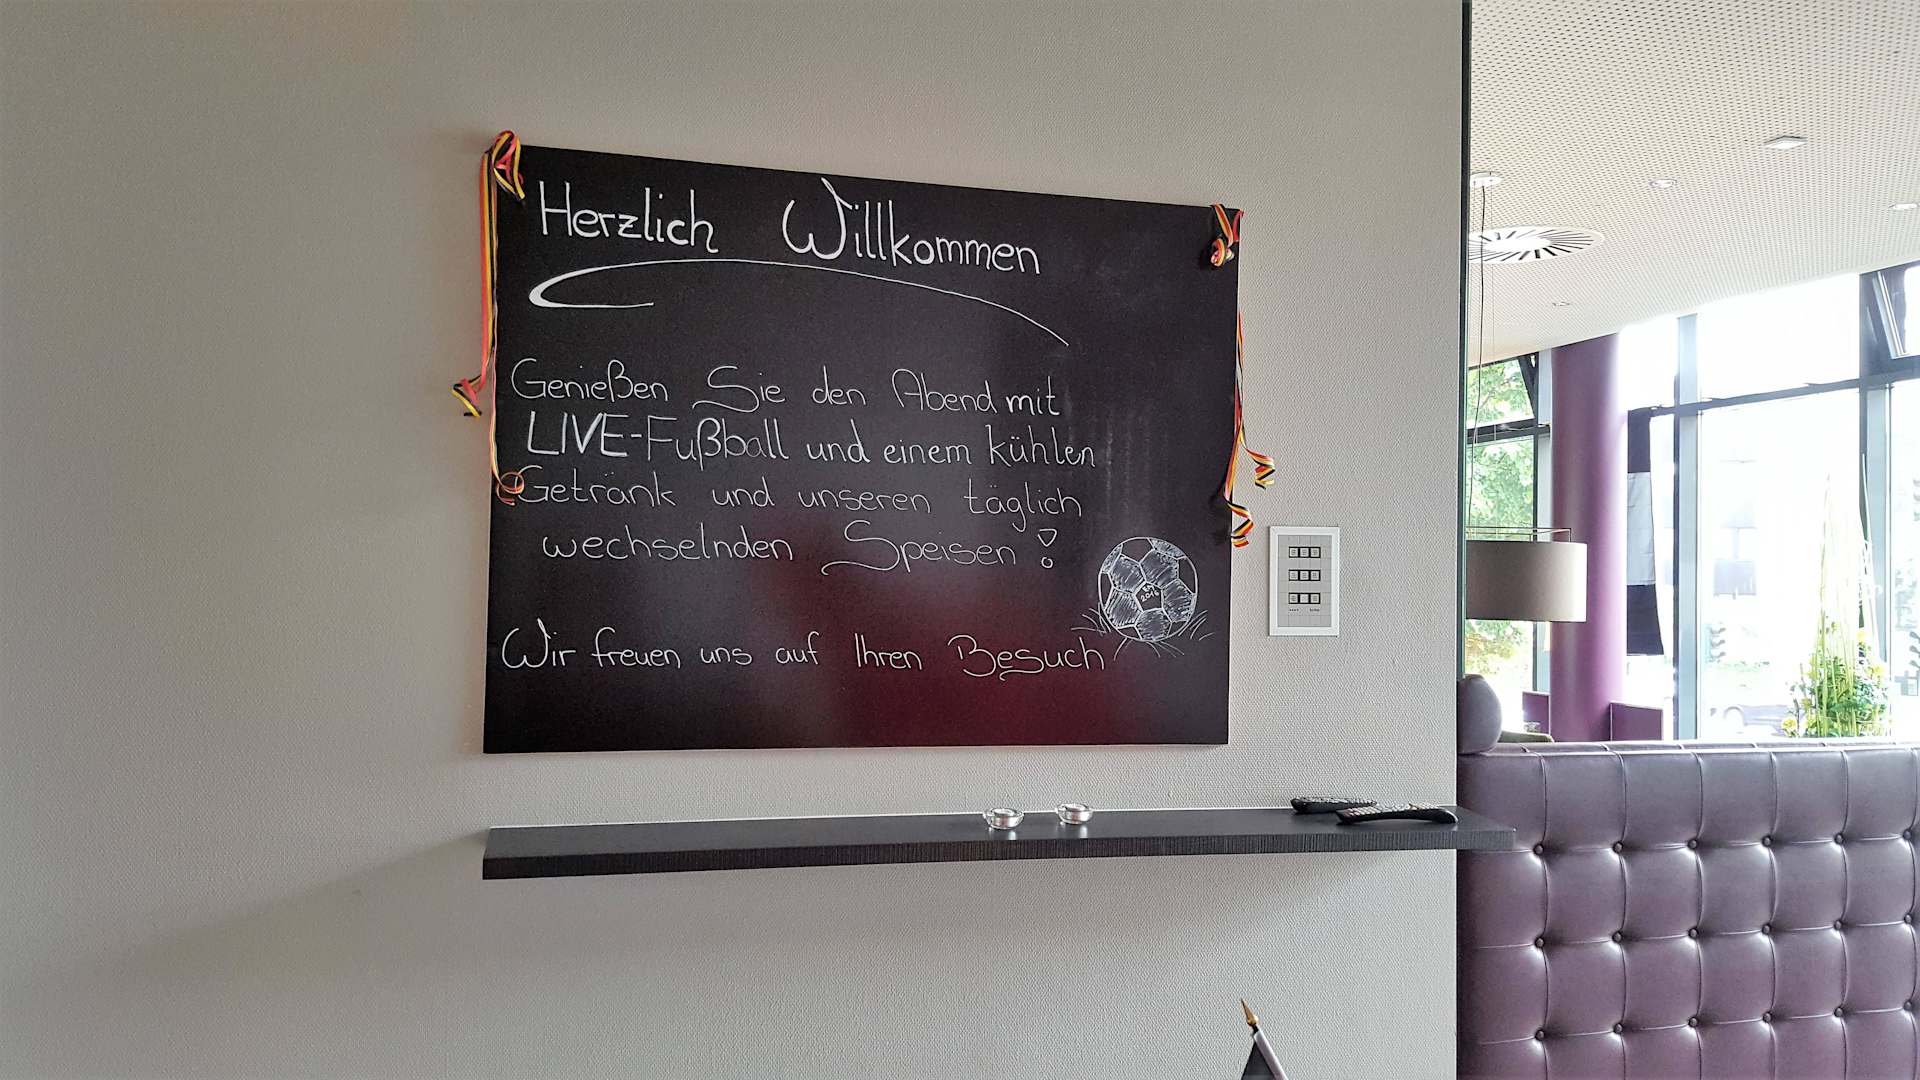 Herzlich Willkommen
Genießen Sie den Abend mit
LIVE-Fußball und einem kühlen
Getränk und unseren täglich
wechselnden Speisen!
EM
2016
Wir freuen uns auf Ihren Besuch